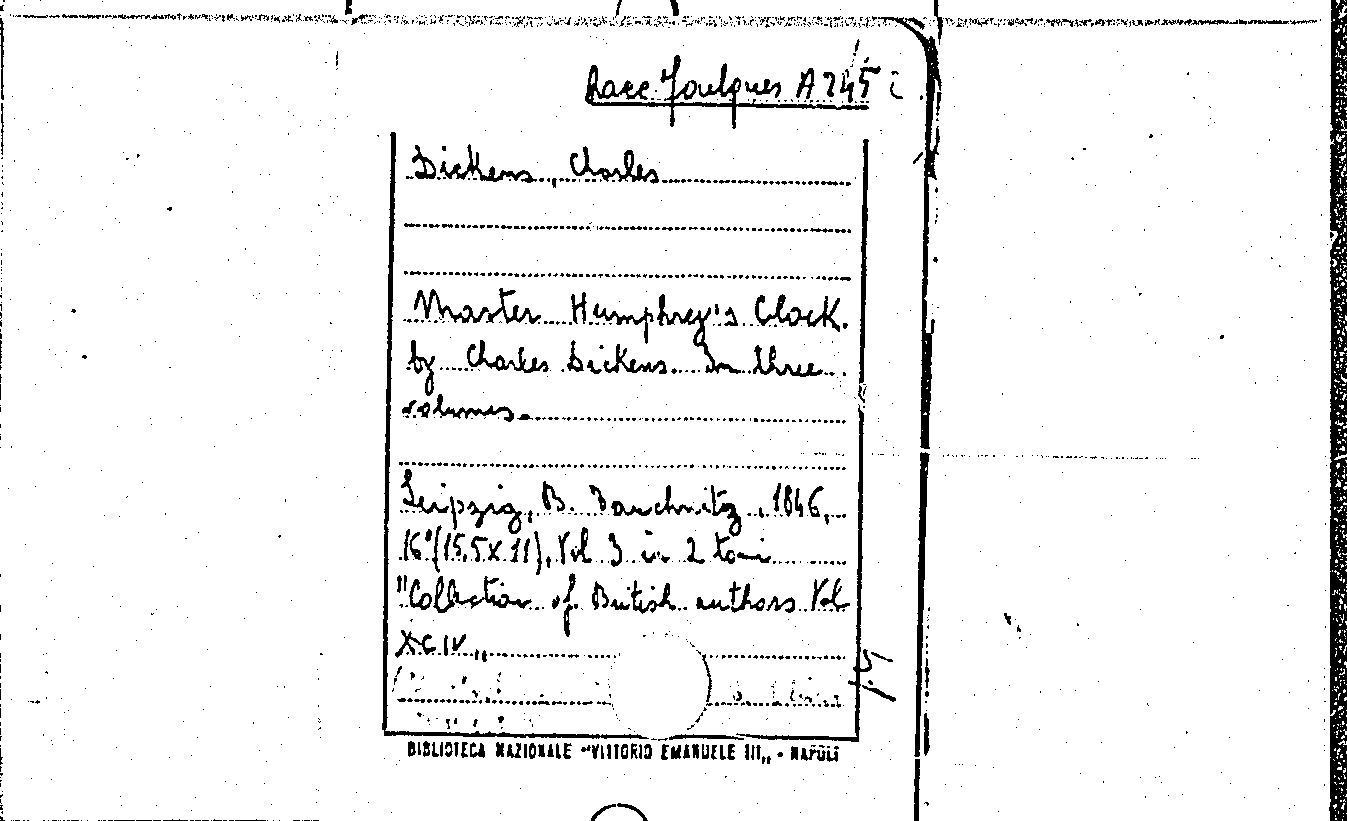 Racc. Foulques A 245
Dickens, Charles
Master Humphrey's Clock.
by Charles Dickens. In three
volumes.
Leipzig, B. Tauchnitz, 1846,
16°(15,5x11), Vol 3 in 2 tomi
"Collection of British authors Vol
XCIV„
BIBLIOTECA NAZIONALE "VITTORIO EMANUELE III„ - NAPOLI